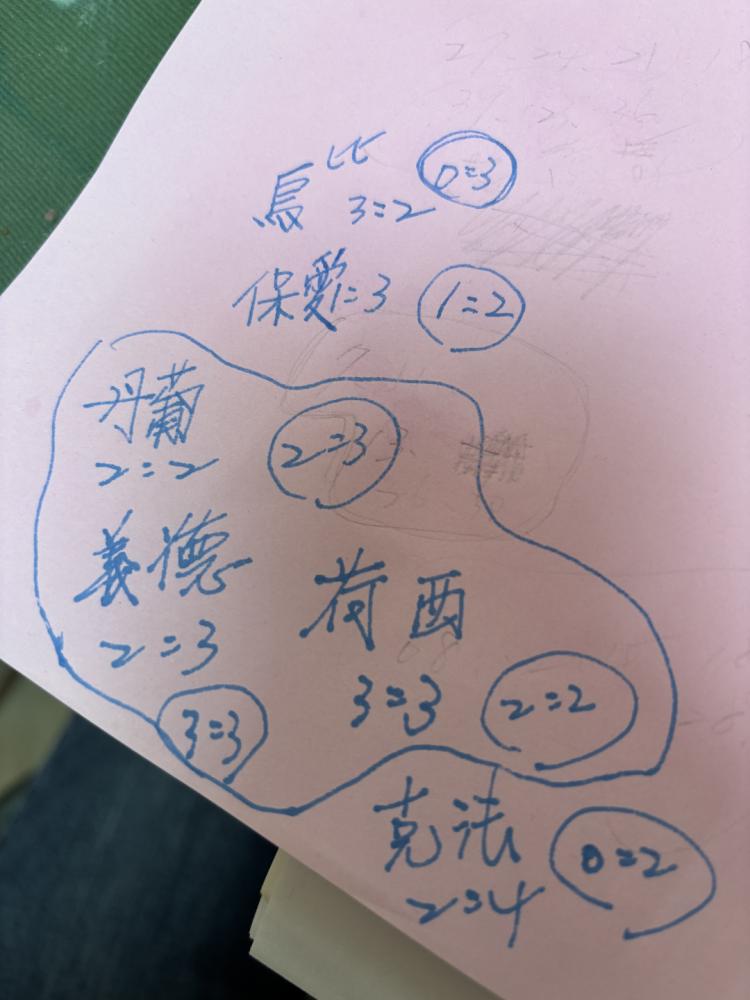 馬比 0=3
3=2
保愛1=3 1=2
丹葡 2=3
2=2
義德
2=3
3=3
荷西
3=3 2=2
克法 0=2
2=4